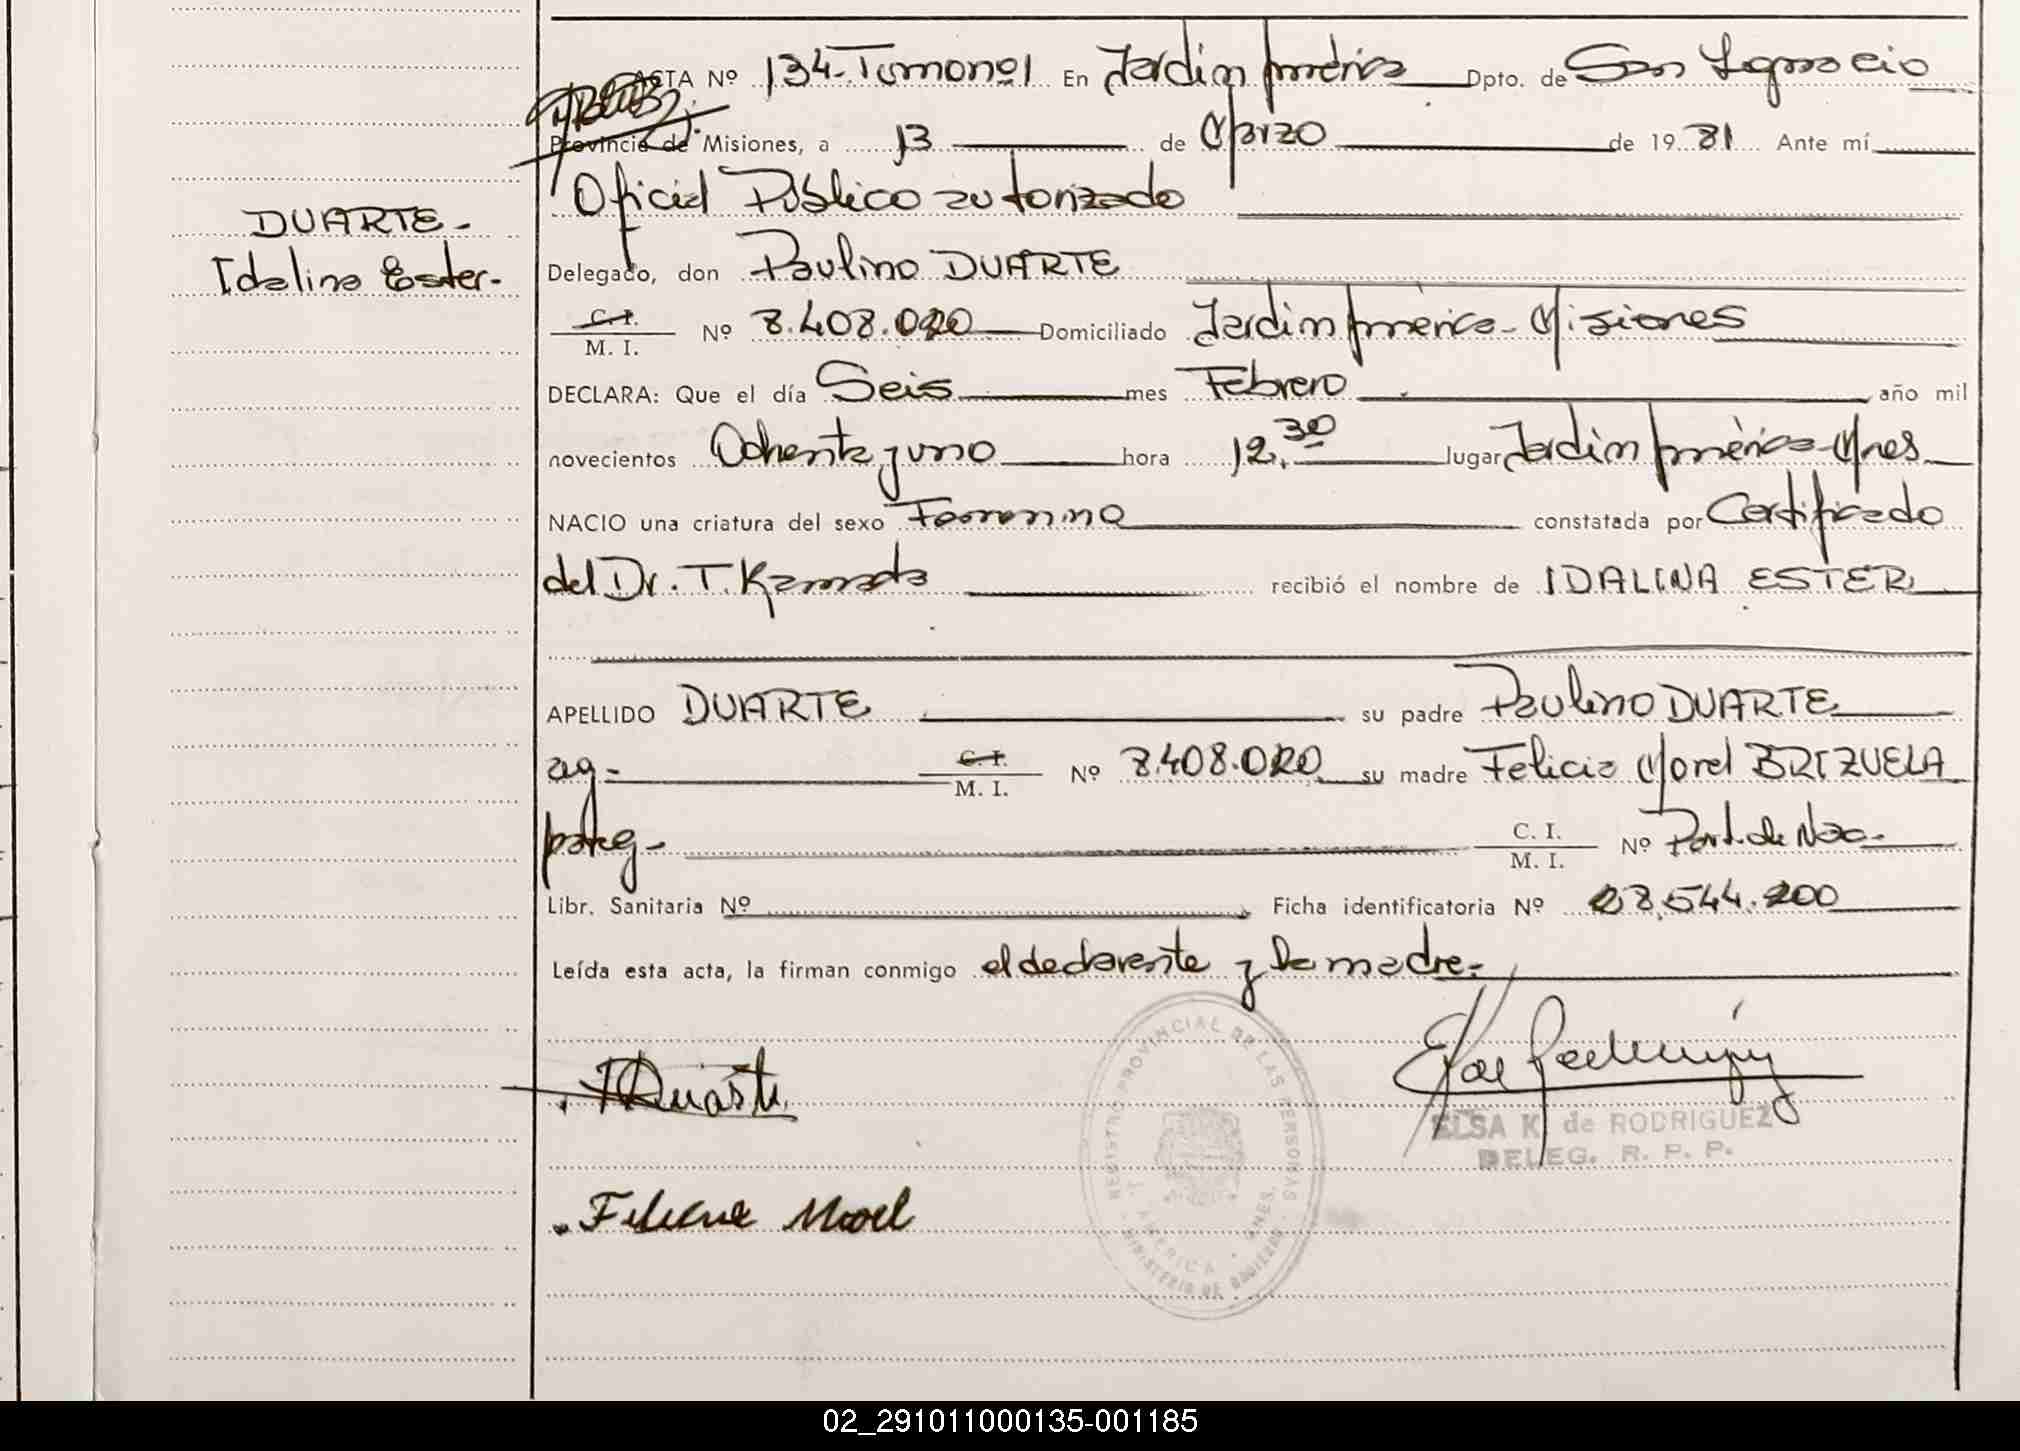 ACTA Nº 134-Tomo nº1 En Jardín América Dpto. de San Ignacio
Provincia de Misiones, a 13 de Marzo de 1981 Ante mí
Oficial Público autorizado
DUARTE-
Idalina Ester-
Delegado, don Paulino DUARTE
C. I.
M. I. Nº 8.408.020 Domiciliado Jardín América- Misiones
DECLARA: Que el día Seis mes Febrero año mil
novecientos Ochenta y uno hora 12,30 lugar Jardín América-Mnes
NACIO una criatura del sexo Femenino constatada por Certificado
del Dr. T. Kamada recibió el nombre de IDALINA ESTER
APELLIDO DUARTE su padre Paulino DUARTE
ag- C. I.
M. I. Nº 8.408.020 su madre Felicia Morel BRIZUELA
parag- C. I.
M. I. Nº Part. de Nac.
Libr. Sanitaria Nº Ficha identificatoria Nº 28.544.200
Leída esta acta, la firman conmigo el declarante y la madre-
REGISTRO PROVINCIAL DE LAS PERSONAS
J. AMERICA - MNES.
MINISTERIO DE
PDuarte
ELSA K. de RODRIGUEZ
DELEG. R. P. P.
Morel
02_291011000135-001185